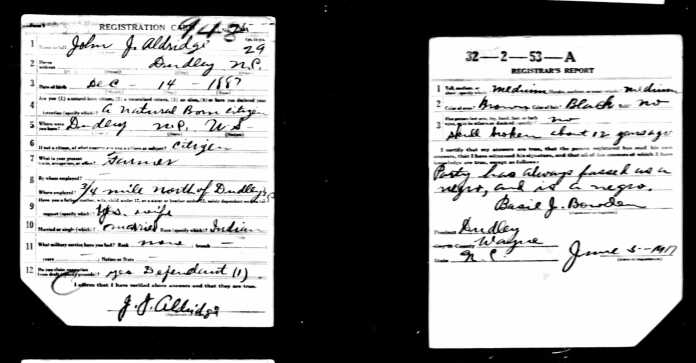 Form 1
REGISTRATION CARD
948
1 Name in full John J. Aldridge 29
2 Home address Dudley N.C.
3 Date of birth Dec - 14 - 1887
4 Are you (1) a natural born citizen, (2) a naturalized citizen, (3) an alien, (4) or have you declared your
intention (specify which)? A Natural Born Citizen
5 Where were you born? Dudley N.C. U S
6 If not a citizen, of what country are you a citizen or subject? Citizen
7 What is your present trade, occupation, or office? Farmer
8 By whom employed?
Where employed? 3/4 mile north of Dudley N.C.
9 Have you a father, mother, wife, child under 12, or a sister or brother under 12, solely dependent on you for
support (specify which)? Yes. wife
10 Married or single (which)? married Race (specify which)? Indian
11 What military service have you had? Rank none branch —
years — Nation or State
12 Do you claim exemption from draft (specify grounds)? yes Dependent (1)
I affirm that I have verified above answers and that they are true.
J. J. Aldridge
32—2—53—A
REGISTRAR'S REPORT
1 Tall, medium, or short (specify which)? medium Slender, medium, or stout (which)? medium
2 Color of eyes? Brown Color of hair? Black Bald? no
3 Has person lost arm, leg, hand, foot, or both eyes, or is he otherwise disabled (specify)? no
skull broken about 12 years ago
I certify that my answers are true, that the person registered has read his own
answers, that I have witnessed his signature, and that all of his answers of which I have
knowledge are true, except as follows:
Party has always passed as a
negro, and is a negro.
Basil J. Bowden
Precinct Dudley
City or County Wayne
State N C
June 5-1917